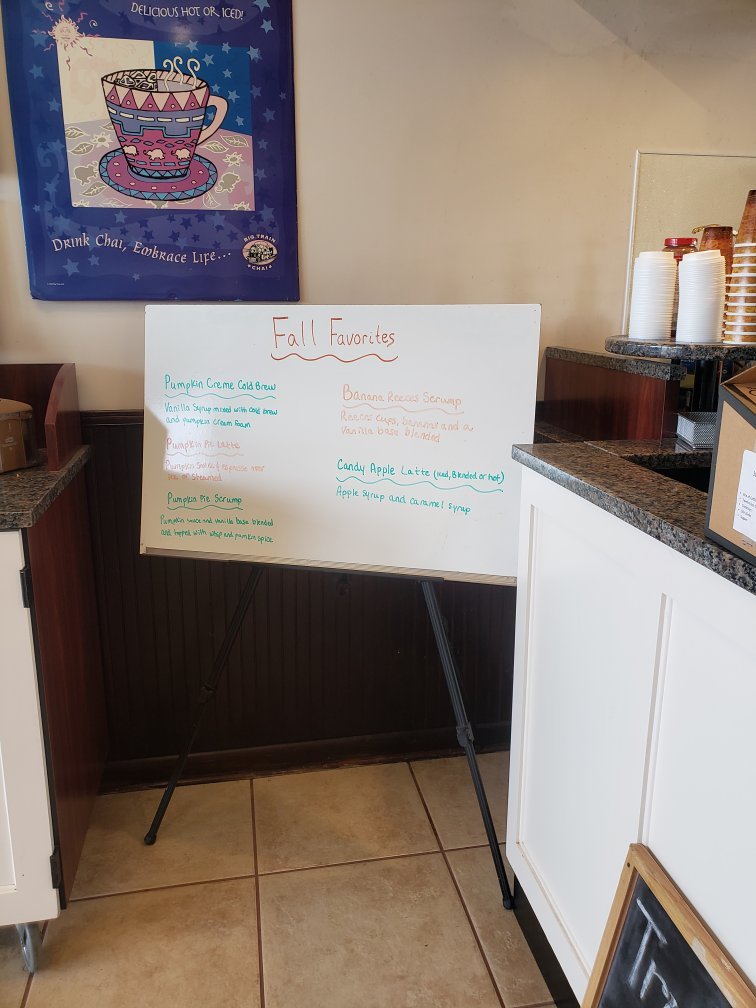 DELICIOUS HOT OR ICED!
DRINK CHAI, EMBRACE LIFE...
BIG TRAIN
CHAI
Fall Favorites
Pumpkin Creme Cold Brew
Vanilla Syrup mixed with cold brew
and pumpkin cream foam
Pumpkin Pie Latte
Pumpkin Sauce & espresso over
ice or steamed
Pumpkin Pie Scrump
Pumpkin sauce and vanilla base blended
and topped with whip and pumpkin spice
Banana Reeces Scrump
Reeces cups, bananas and a
vanilla base blended
Candy Apple Latte (iced, Blended or hot)
Apple syrup and caramel syrup